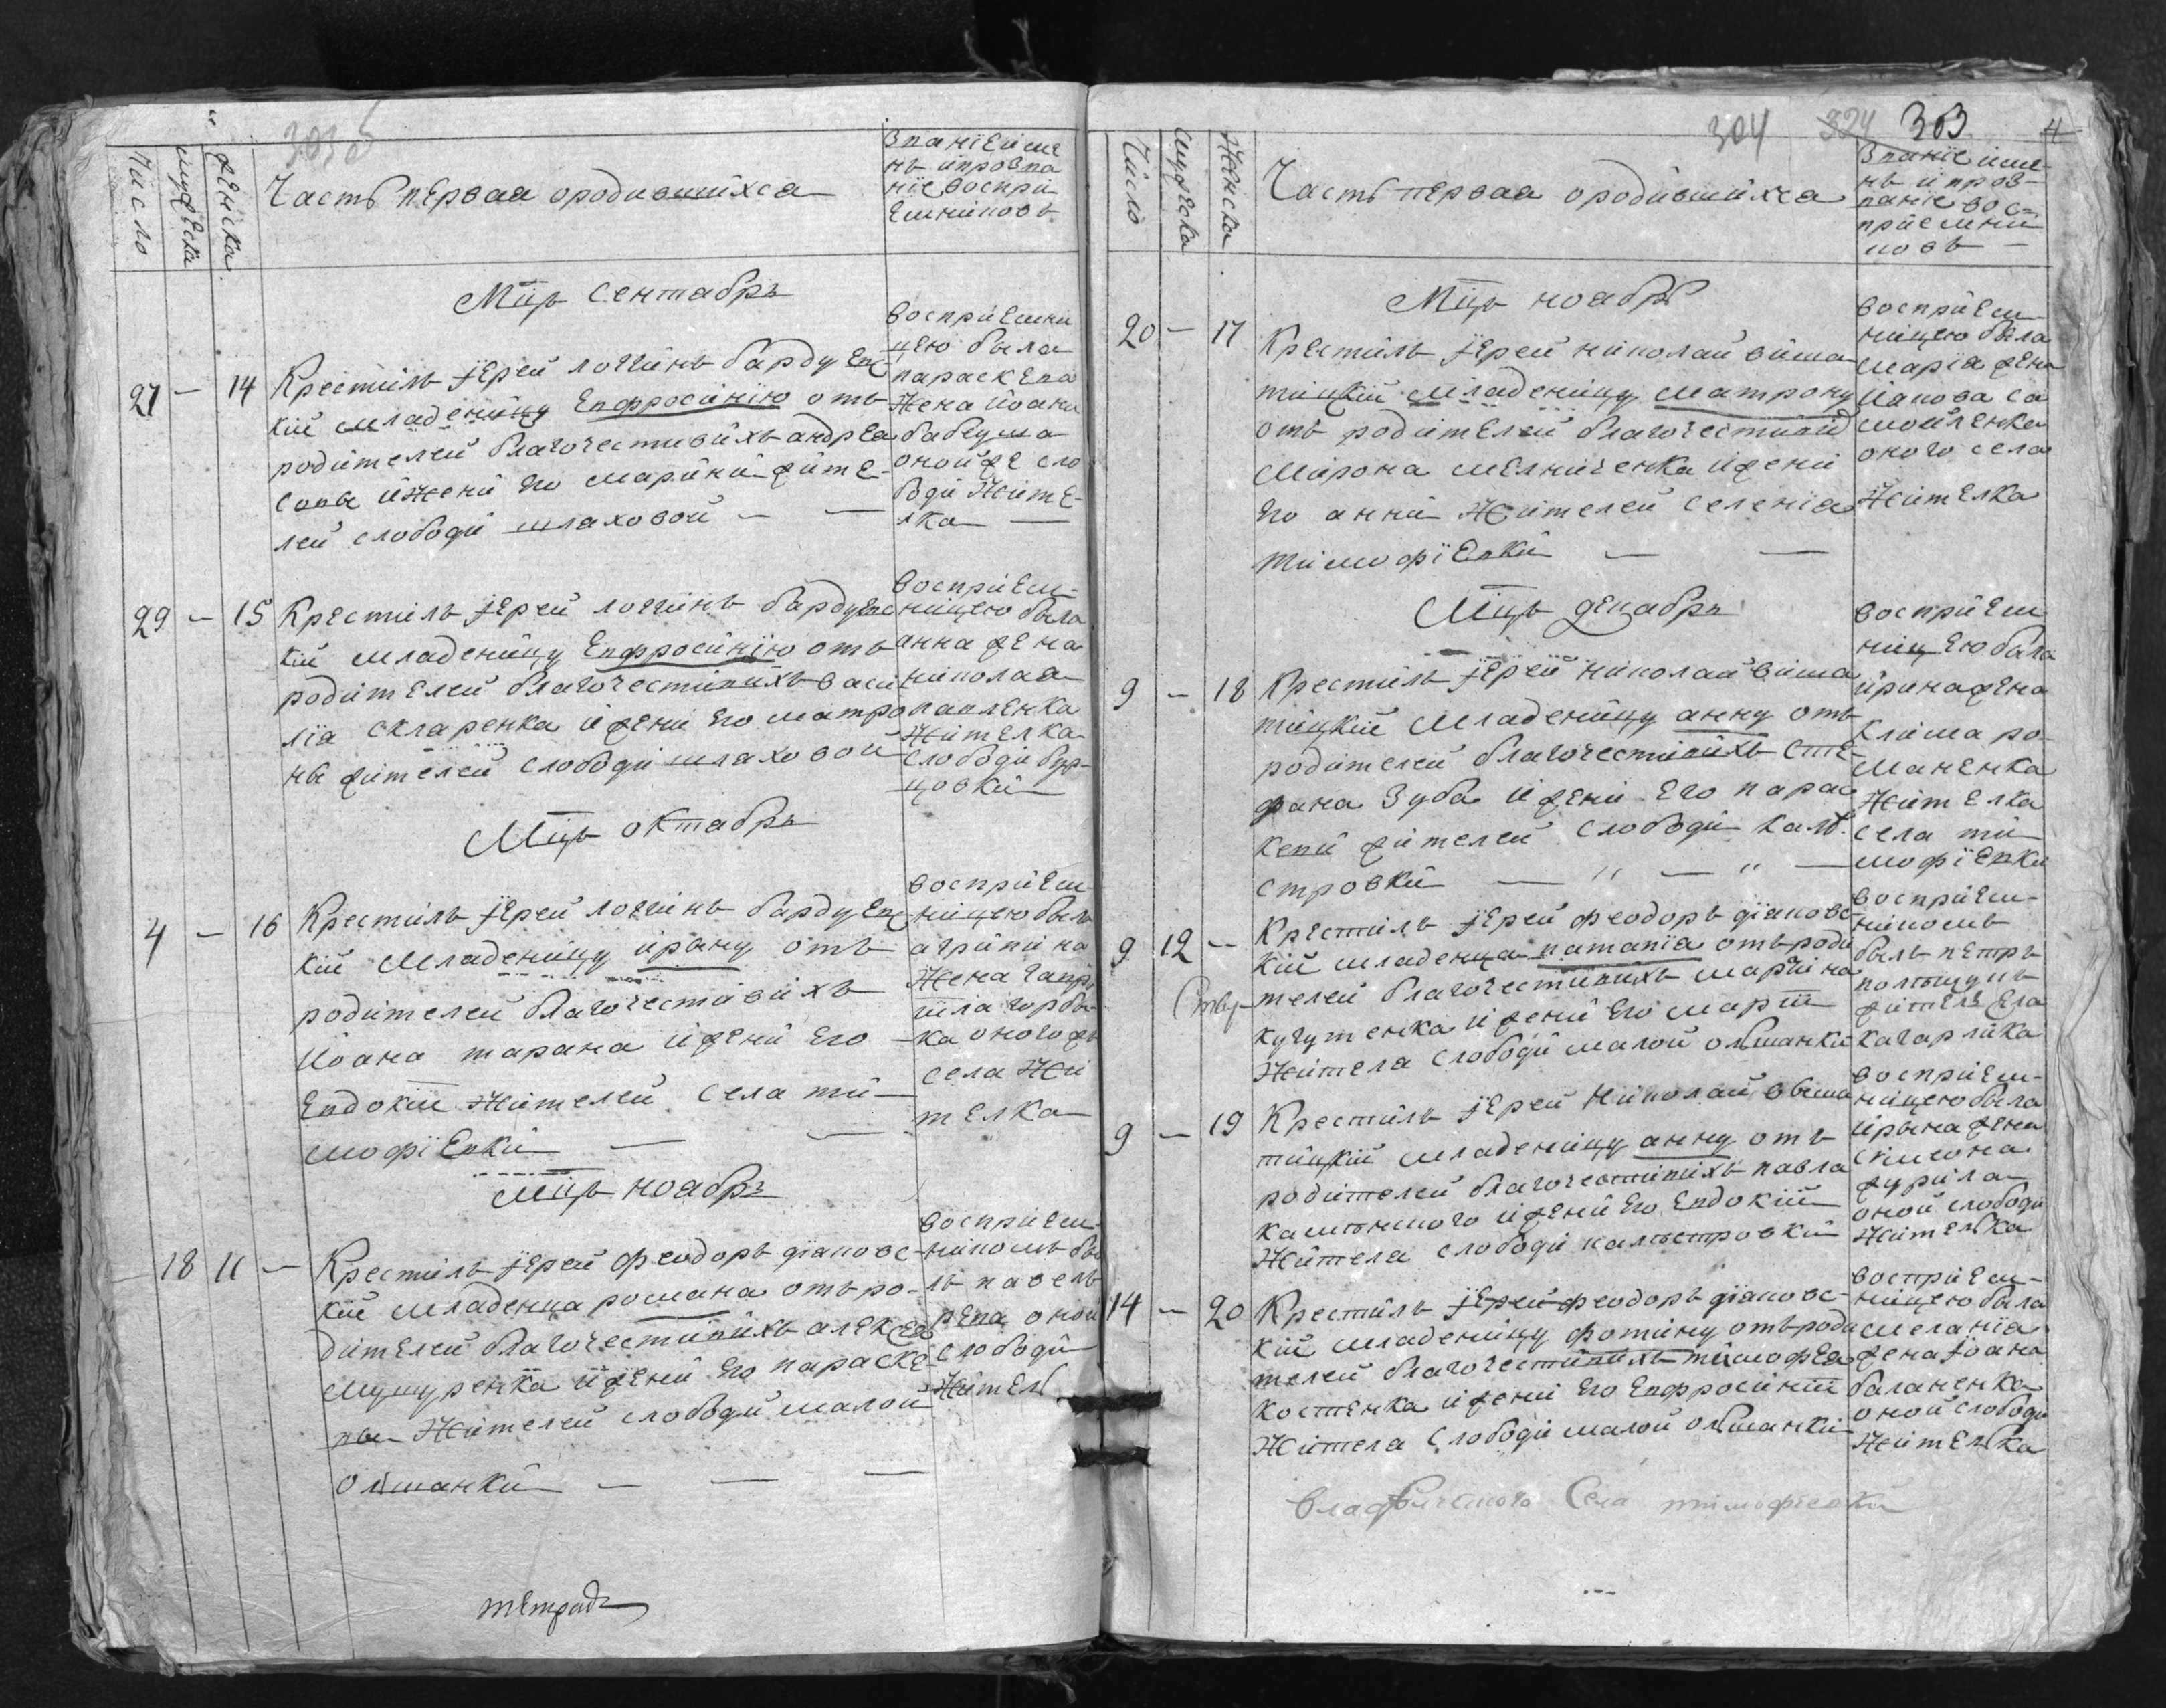 303 б
Число
мужеска
женска
Часть первая ородившихся
Званїе име
нъ ипрозва
нїе воспри
емниковъ
Мцъ сентябръ
27 — 14
Крестилъ іерей логгинъ бардуевс
кій младеницу Евфросинїю отъ
родителей благочестивихъ андреа
совы ижени его марини жите-
лей слободи шляховой —
восприемни
цею была
параскева
жена иоана
бабеуша
оной же сло
боди жите-
лка —
29 — 15
Крестилъ іерей логгинъ бардуевс
кій младеницу Евфросинїю отъ
родителей благочестивихъ васи
лїа скляренка ижени его матро
ны жителей слободи шляховой
восприем-
ницею была
анна жена
николаа
павленка
жителка
слободи бур-
цовки
Мцъ октабръ
4 — 16
Крестилъ іерей логгинъ бардуевс
кій младеницу ирину отъ
родителей благочестивихъ
иоана тарана ижени его
Евдокїи жителей села ти-
мофїевки —
восприем-
ницею была
агрипина
жена гавр
иїла горбы-
ка оного же
села жи
телка
Мцъ ноабръ
18 11 —
Крестилъ іерей феодоръ дїаковс-
кїй младенца романа отъ ро-
дителей благочестивихъ алексея
мушуренка ижени его параске-
вы жителей слободи малой
олшанки — — —
восприем-
никомъ бы
лъ павелъ
рева оной
слободи
житель
тетрадъ
304 324 303 4
Число
мужеска
женска
Часть первая ородившихса
Званїе име-
нъ ипроз-
ванїе вос=
приемни
ковъ —
Мцъ ноабръ
20 — 17
Крестилъ іерей николай виша
тицкїй младеницу матрону
отъ родителей благочестивих
мирона мелниченка ижени
его анни жителей селенїа
тимофїевки — —
восприем
ницею была
марїа жена
иакова са
мойленка
оного села
жителка
Мцъ декабръ
9 — 18
Крестилъ іерей николай виша
тицкїй младеницу анну отъ
родителей благочестивихъ сте-
фана зуба ижени его парас
кеви жителей слободи каль
стровки — " — " —
восприем
ницею была
ирина жена
клима ро-
маненка
жителка
села ти
мофїевки
9 12 —
Крестилъ іерей феодоръ дїаковс
кїй младенца патапїа отъ роди
телей благочестивихъ мартина
кугутенка ижени его марїи
жителя слободи малой олшанки
восприем-
никомъ
былъ петръ
полтицунъ
житель села
кагарлика
9 — 19
Крестилъ іерей николай виша
тицкїй младеницу анну отъ
родителей благочестивихъ павла
камъяного ижени его Евдокїи
жителя слободи кальстровки
восприем-
ницею была
ирина жена
симеона
журила
оной слободи
жителька
14 — 20
Крестилъ іерей феодоръ дїаковс-
кїй младеницу фотину отъ роди
телей благочестивихъ тимофеа
костенка ижени его Евфросинїи
жителя слободи малой олшанки
восприем-
ницею была
меланїа
жена іоана
баланенка
оной слободи
жителька
села тимофїевки